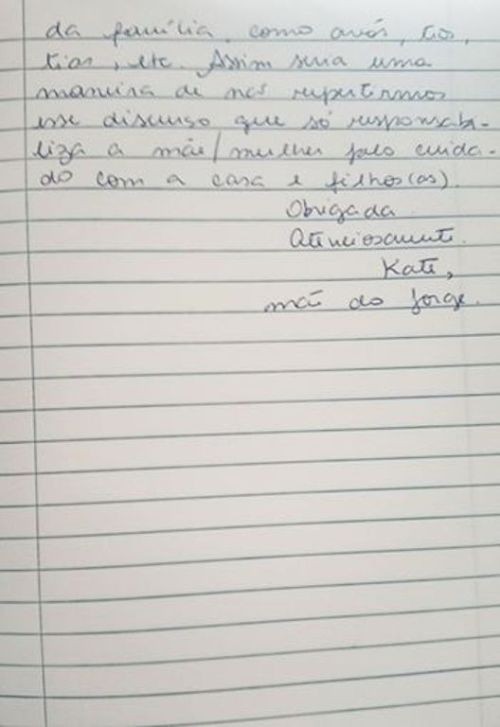 da família, como avós, tios,
tias, etc. Assim seria uma
maneira de nós repetirmos
esse discurso que só responsabi-
liza a mãe/mulher pelo cuida-
do com a casa e filhos(as).
Obrigada.
Atenciosamente.
Kate,
mãe do Jorge.